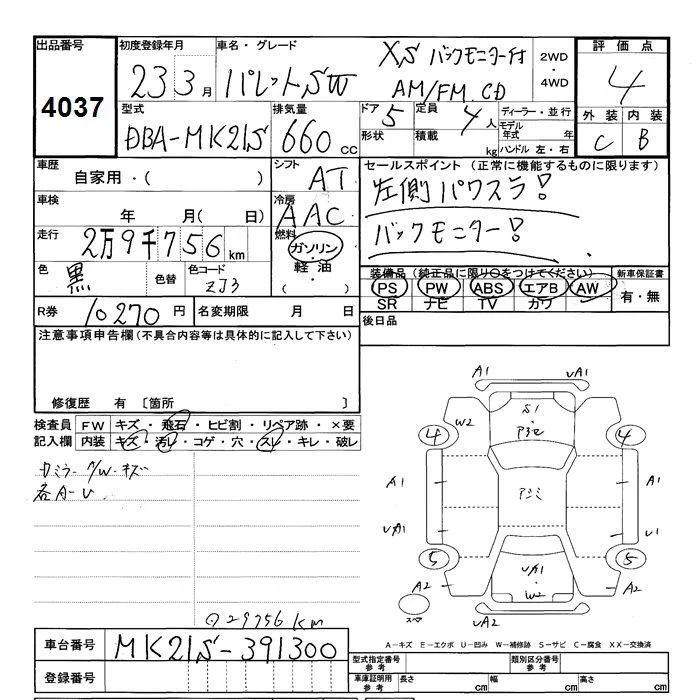 出品番号 初度登録年月 車名・グレード 2WD・4WD 評価点
4037 23 3月 パレットSW XS バックモニター付 AM/FM CD 4
型式 排気量 ドア 定員 ディーラー・並行 外装 内装
DBA-MK21S 660cc 5 4人 モデル年式 年 C B
形状 積載 kg ハンドル 左・右
車歴 シフト セールスポイント (正常に機能するものに限ります)
自家用・( ) AT 左側パワスラ!
車検 冷房
年 月(日) AAC バックモニター!
走行 燃料
2万9千756km ガソリン・軽油・( )
装備品 (純正品に限り○をつけてください) 新車保証書
色 黒 色替 色コード ZJ3 PS PW ABS エアB AW 有・無
SR ナビ TV カワ
R券 10270円 名変期限 月 日 後日品
注意事項申告欄 (不具合内容等は具体的に記入して下さい)
修復歴 有 〔箇所 〕
検査員 FW キズ・飛石・ヒビ割・リペア跡・×要
記入欄 内装 キズ・汚レ・コゲ・穴・スレ・キレ・破レ
各A-U
A1 UA1
W2 S1
4 4
A1 A1
UA1 U1
5 5
UA1・W2
A2 A2
スペア
UA2
29756km
A-キズ E-エクボ U-凹み W-補修跡 S-サビ C-腐食 XX-交換済
車台番号 MK21S-391300
型式指定番号 参考 類別区分番号 参考
登録番号 車庫証明用 参考 長さ cm 幅 cm 高さ cm